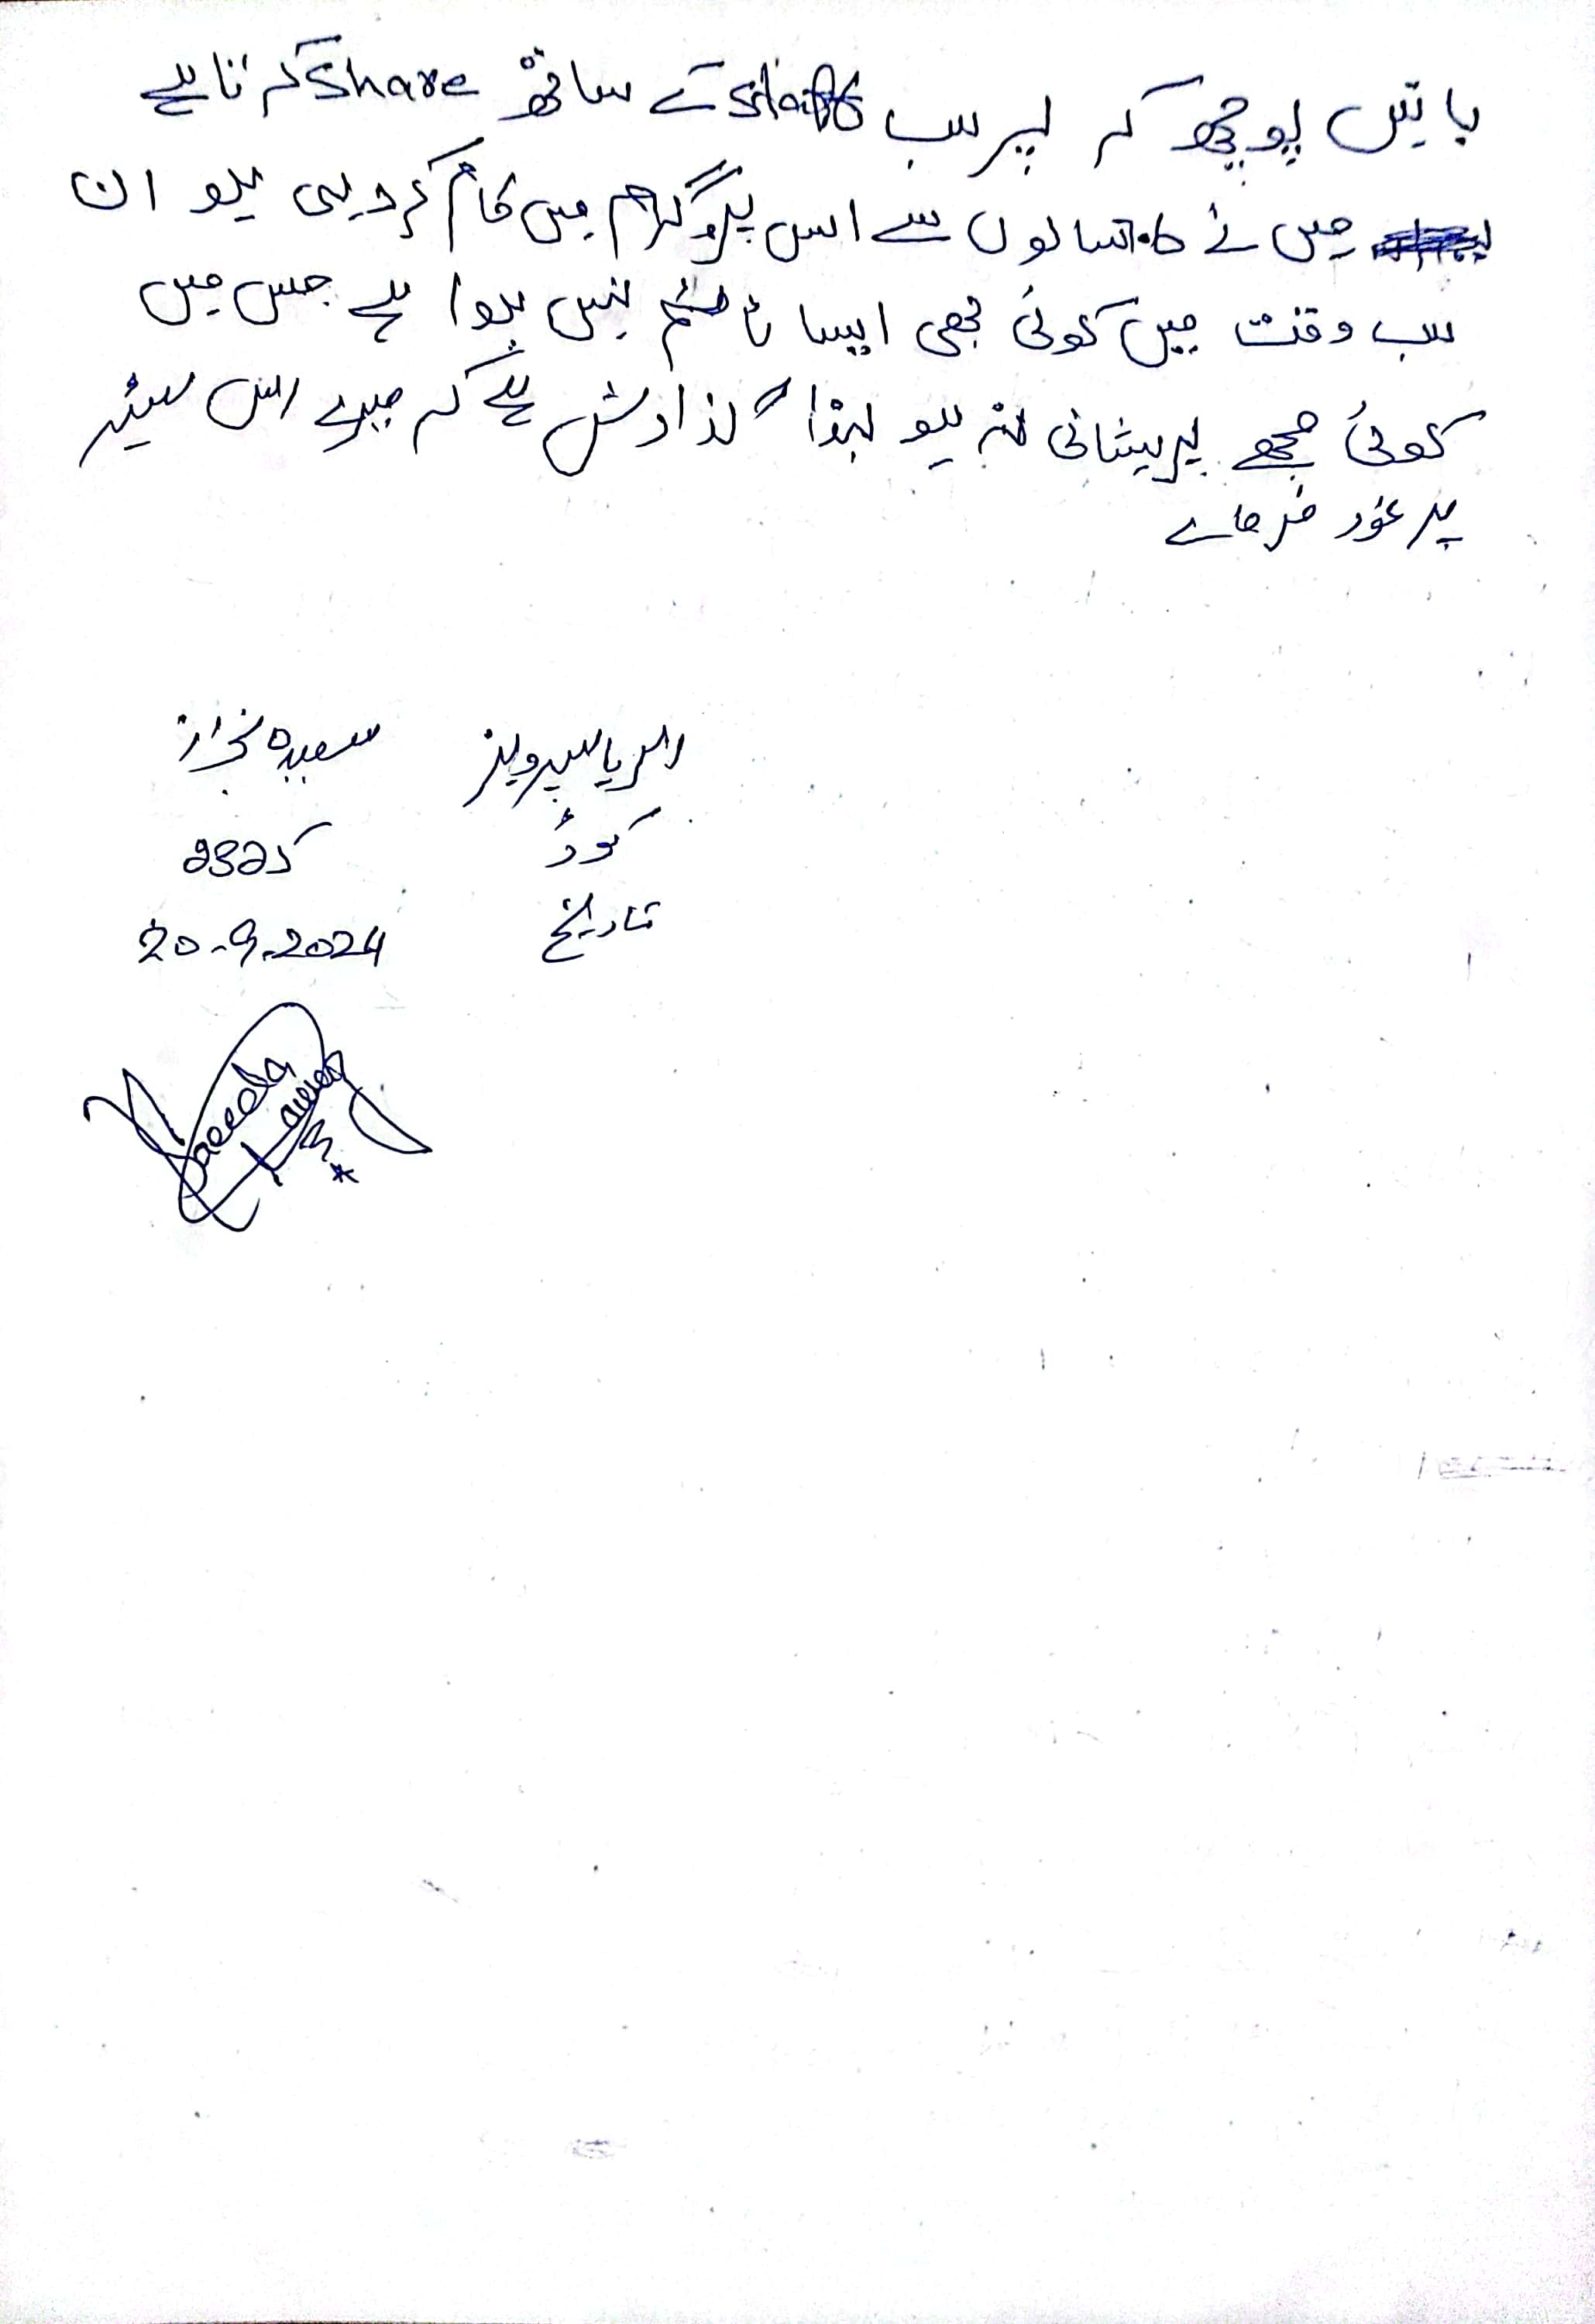 باتیں پوچھ کر پر سب staff کے ساتھ share کرتا ہے
میں نے سالوں سے اس پروگرام میں کام کر دہی ہو ان
سب وقت میں کوئی بھی ایسا ٹائم نہیں ہوا ہے جس میں
کوئی مجھے پریشانی نہ ہو لہذا گذارش ہے کہ میرے اس
پر غور فرماے
سعیدہ
کوڈ
تاریخ 20-9-2024
Saeeda